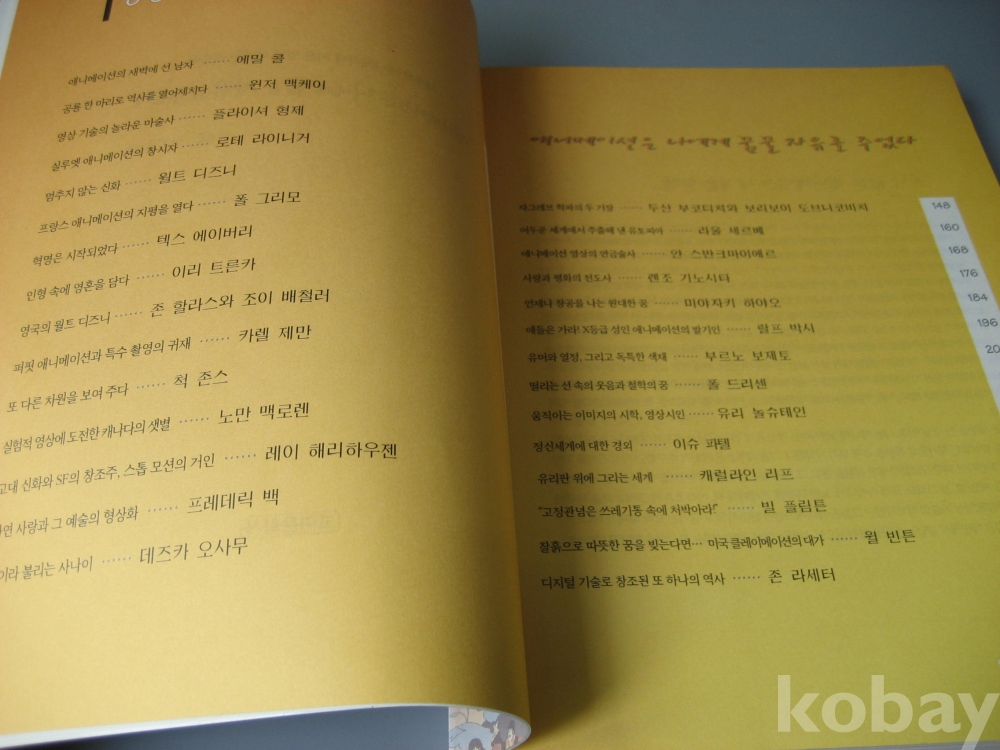 애니메이션의 새벽에 선 남자 ······ 에밀 콜
공룡 한 마리로 역사를 열어제치다 ······ 윈저 맥케이
영상 기술의 놀라운 마술사 ······ 플라이셔 형제
실루엣 애니메이션의 창시자 ······ 로테 라이니거
멈추지 않는 신화 ······ 월트 디즈니
프랑스 애니메이션의 지평을 열다 ······ 폴 그리모
혁명은 시작되었다 ······ 텍스 에이버리
인형 속에 영혼을 담다 ······ 이리 트른카
영국의 월트 디즈니 ······ 존 할라스와 조이 배철러
퍼핏 애니메이션과 특수 촬영의 귀재 ······ 카렐 제만
또 다른 차원을 보여 주다 ······ 척 존스
실험적 영상에 도전한 캐나다의 샛별 ······ 노만 맥로렌
고대 신화와 SF의 창조주, 스톱 모션의 거인 ······ 레이 해리하우젠
사랑과 그 예술의 형상화 ······ 프레데릭 백
불리는 사나이 ······ 데즈카 오사무
애니메이션은 나에게 꿈꿀 자유를 주었다
자그레프 학파의 두 거장 ······ 두산 부코티치와 보리보이 도브니코비치 148
어두운 세계에서 추출해 낸 유토피아 ······ 라울 세르베 160
애니메이션 영상의 연금술사 ······ 얀 스반크마이에르 168
사랑과 평화의 전도사 ······ 렌조 기노시타 176
언제나 창공을 나는 원대한 꿈 ······ 미야자키 하야오 184
애들은 가라! X등급 성인 애니메이션의 발기인 ······ 랄프 박시 196
유머와 열정, 그리고 독특한 색채 ······ 부르노 보제토 20
떨리는 선 속의 웃음과 철학의 꿈 ······ 폴 드리센
움직이는 이미지의 시학, 영상시인 ······ 유리 놀슈테인
정신세계에 대한 경외 ······ 이슈 파텔
유리판 위에 그리는 세계 ······ 캐럴라인 리프
"고정관념은 쓰레기통 속에 처박아라!" ······ 빌 플림튼
찰흙으로 따뜻한 꿈을 빚는다면… 미국 클레이메이션의 대가 ······ 윌 빈튼
디지털 기술로 창조된 또 하나의 역사 ······ 존 라세터
kobay